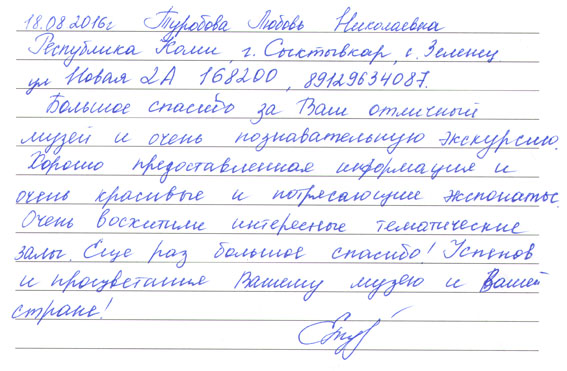 18.08.2016г Туробова Любовь Николаевна
Республика Коми, г. Сыктывкар, с. Зеленец
ул Новая 2А 168200, 89129634087.
Большое спасибо за Ваш отличный
музей и очень познавательную экскурсию.
Хорошо предоставленная информация и
очень красивые и потрясающие экспонаты.
Очень восхитили интересные тематические
залы. Еще раз большое спасибо! Успехов
и процветания Вашему музею и Вашей
стране!